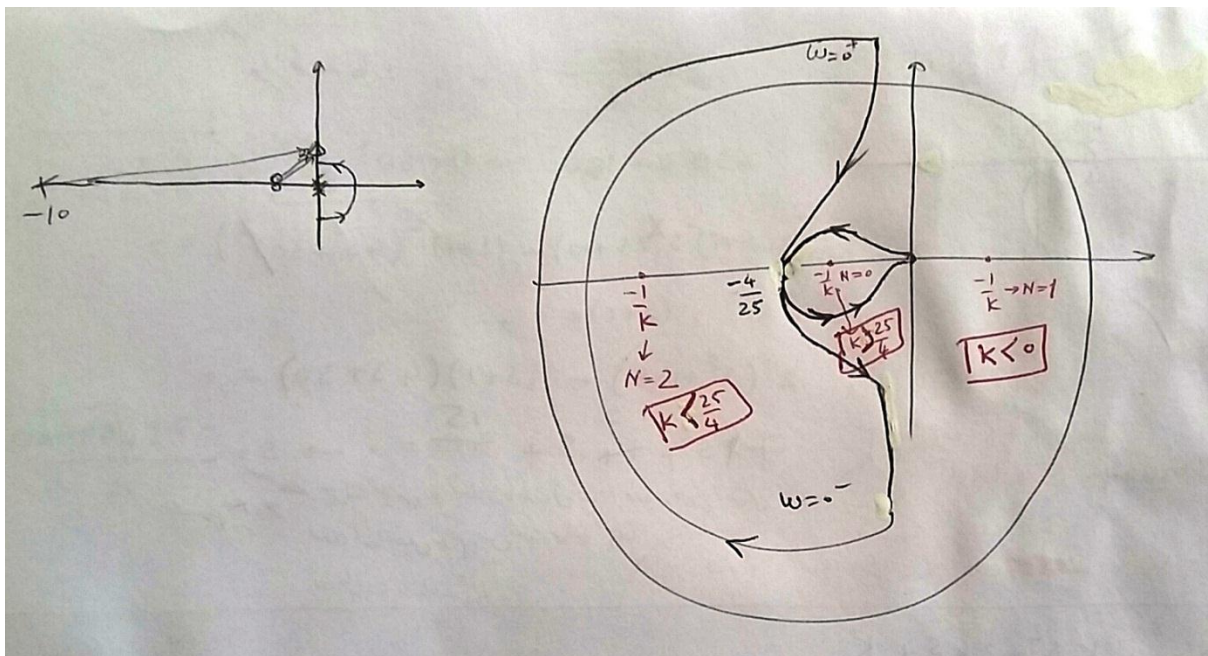 -10
ω=0⁺
-4/25
-1/K
N=2
K<25/4
-1/K N=0
K>25/4
-1/K → N=1
K<0
ω=0⁻